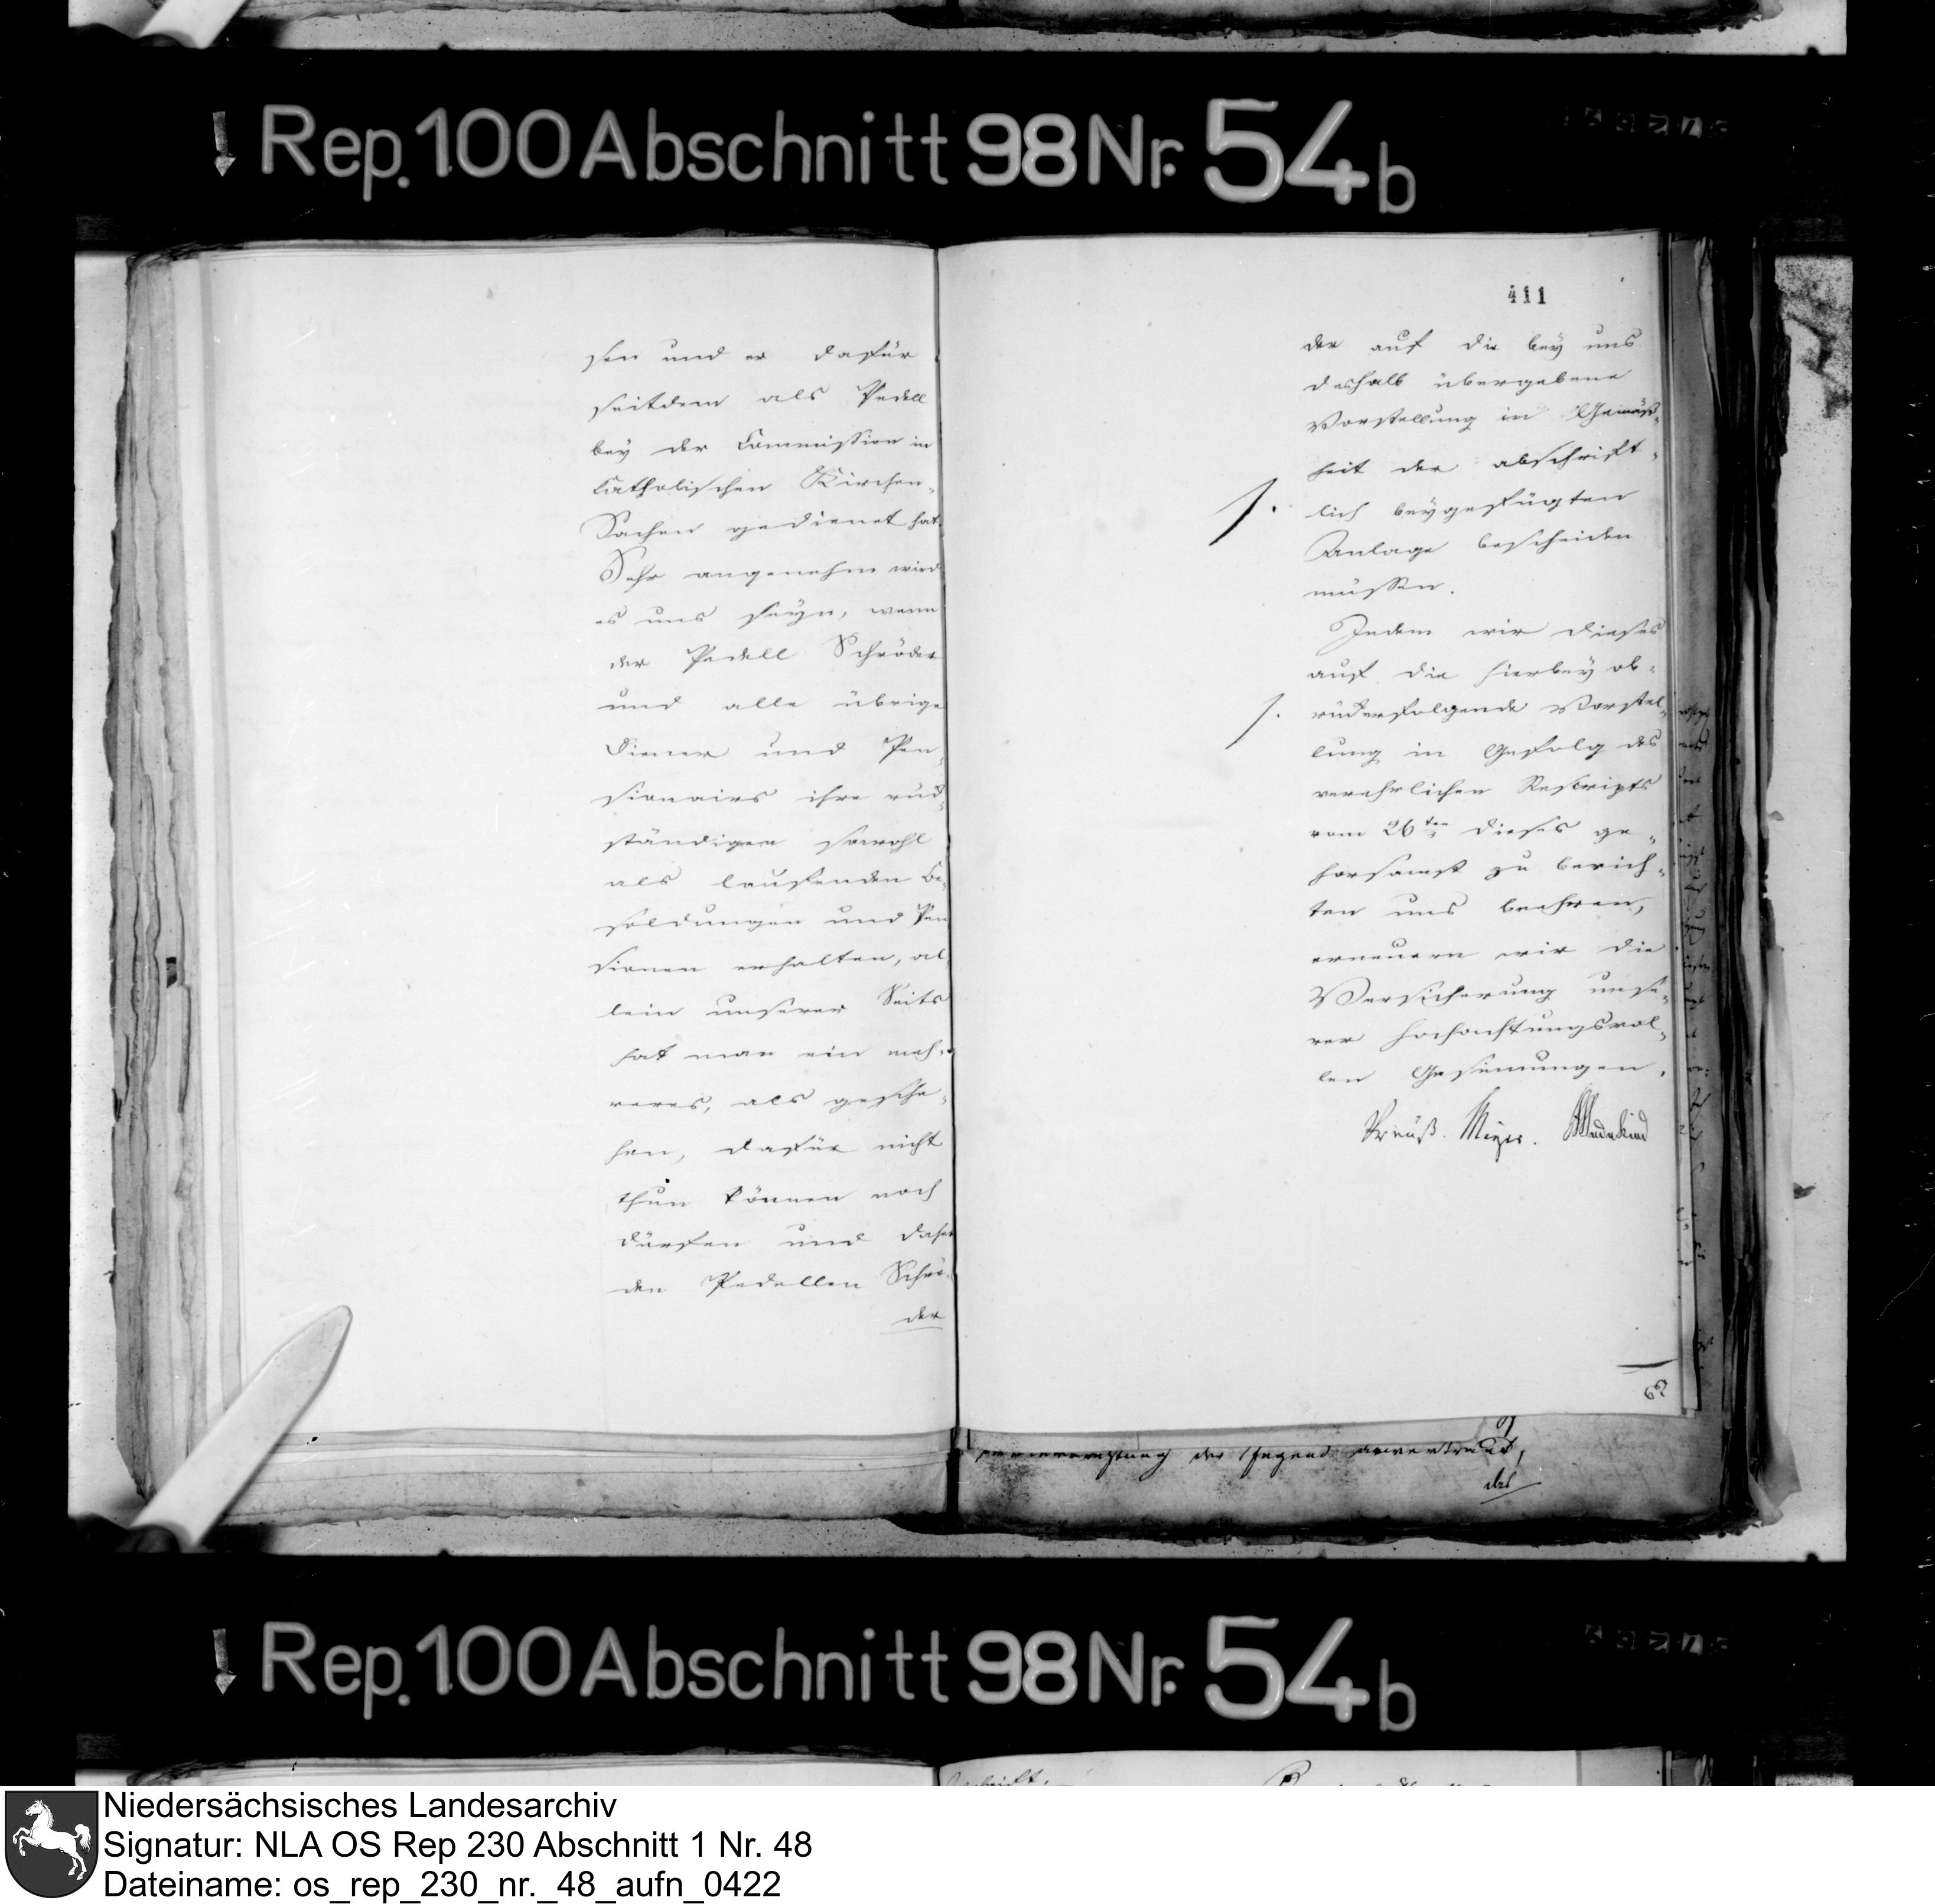 Rep. 100 Abschnitt 98 Nr. 54b
sen und er dafür
seitdem als Pedell
bey der Commission in
Catholischen Kirchen-
Sachen gedienet hat.
Sehr angenehm wird
es uns seyn, wenn
der Pedell Schröder
und alle übrige
Diener und Pen-
sionairs ihre rück-
ständigen sowohl
als laufenden Be-
soldungen und Pen
sionen erhalten, al-
lein unserer Seits
hat man ein meh-
reres, als gesche-
hen, dafür nicht
thun können noch
dürfen und daher
den Pedellen Schrö-
der
411
der auf die bey uns
deshalb übergebene
Vorstellung in Gemäß-
heit der abschrift-
lich beygefügten
Anlage bescheiden
müssen.
Indem wir dieses
auf die hierbey
rückerfolgende Vorstel-
lung in Gefolg des
verehrlichen Rescripts
vom 26ten dieses ge-
horsamst zu berich-
ten uns beehren,
erneuern wir die
Versicherung unse-
rer hochachtungsvol-
len Gesinnungen.
Preuß. Meyer. Wedekind
der Jugend anvertrauet,
des
Rep. 100 Abschnitt 98 Nr. 54b
Niedersächsisches Landesarchiv
Signatur: NLA OS Rep 230 Abschnitt 1 Nr. 48
Dateiname: os_rep_230_nr._48_aufn_0422